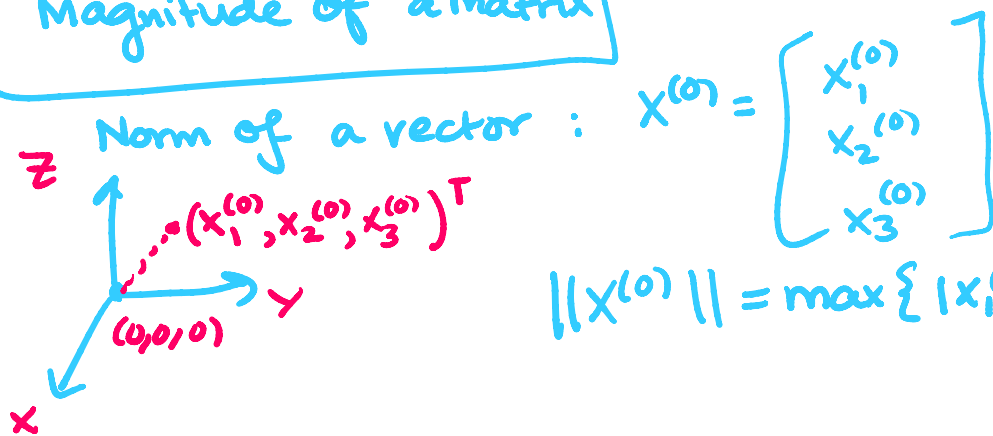 Magnitude of a matrix
Norm of a vector : X^(0) = [x_1^(0)
x_2^(0)
x_3^(0)]
Z
(x_1^(0), x_2^(0), x_3^(0))^T
Y
(0,0,0)
X
||X^(0)|| = max{ |x_1